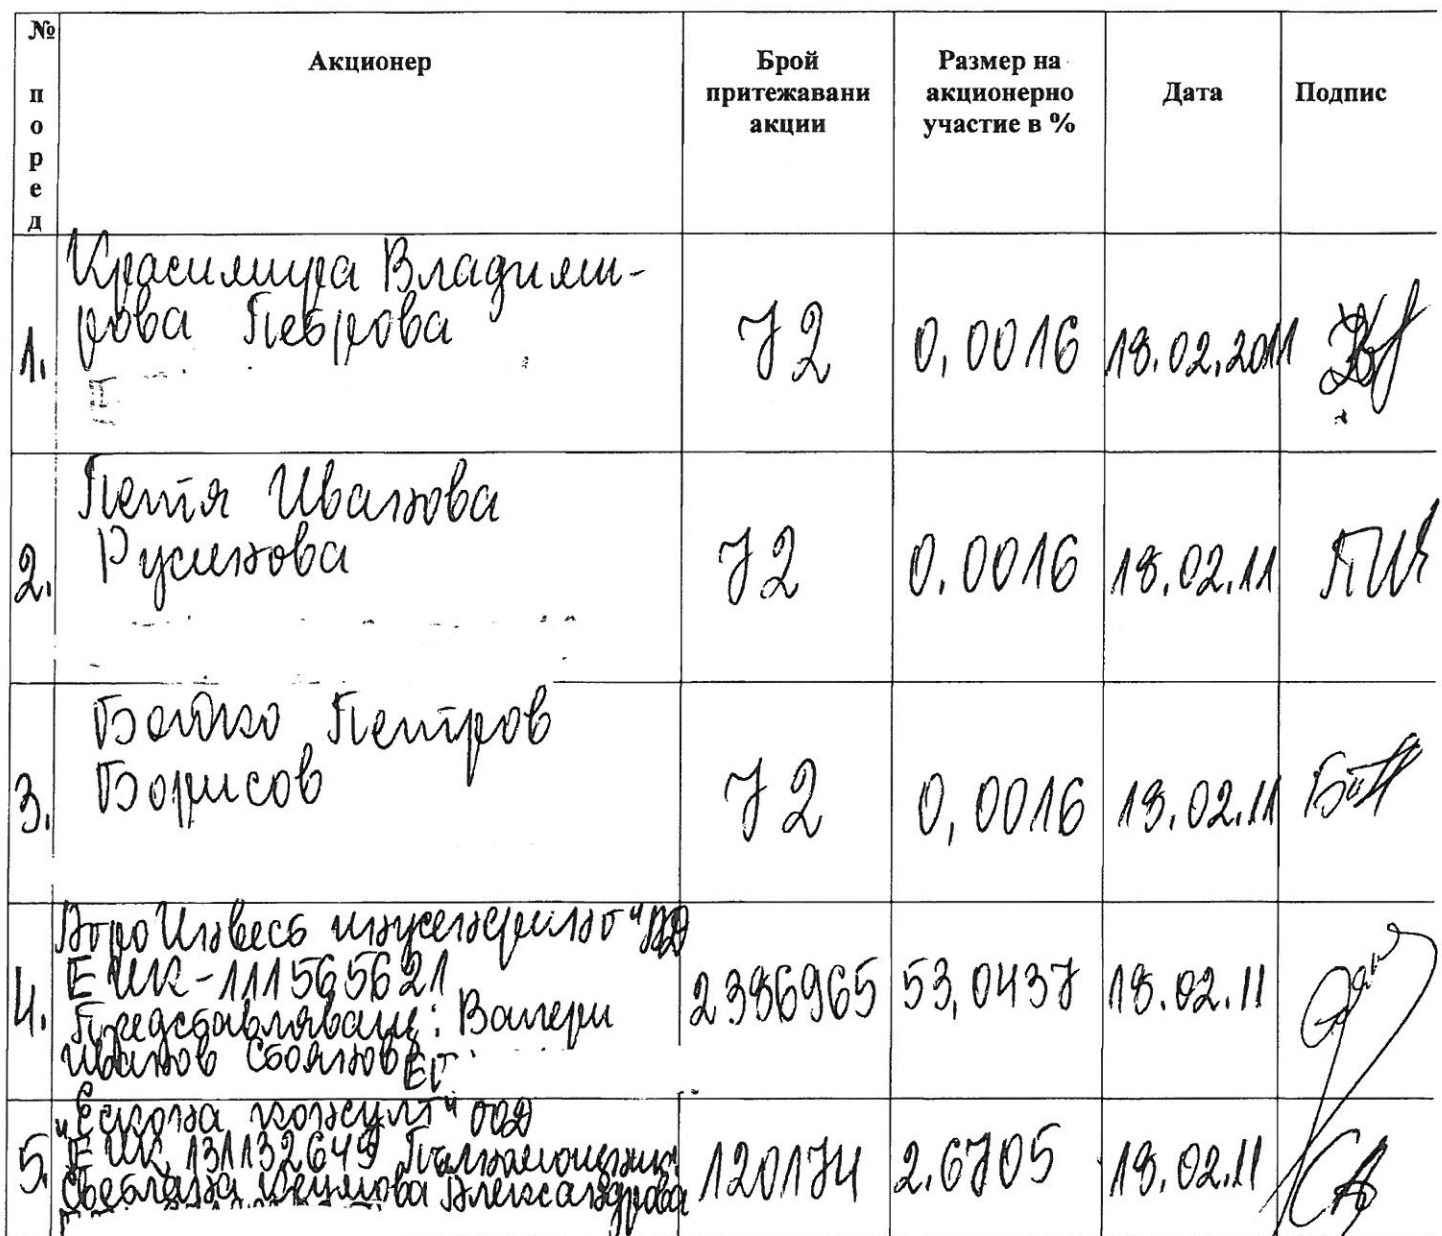 № поред
Акционер
Брой
притежавани
акции
Размер на
акционерно
участие в %
Дата
Подпис
1.
Красимира Владими-
рова Петрова
72
0,0016
18.02.2011
2.
Петя Иванова
Русинова
72
0.0016
18.02.11
3.
Бойко Петров
Борисов
72
0,0016
18.02.11
4.
Инвест инженеринг" АД
ЕИК-111565621
Представляващ: Валери
Иванов Стоянов
2386965
53,0437
18.02.11
5.
консулт" ООД
ЕИК 131132649 Пълномощник:
Светлана Александрова
120174
2.6705
18.02.11